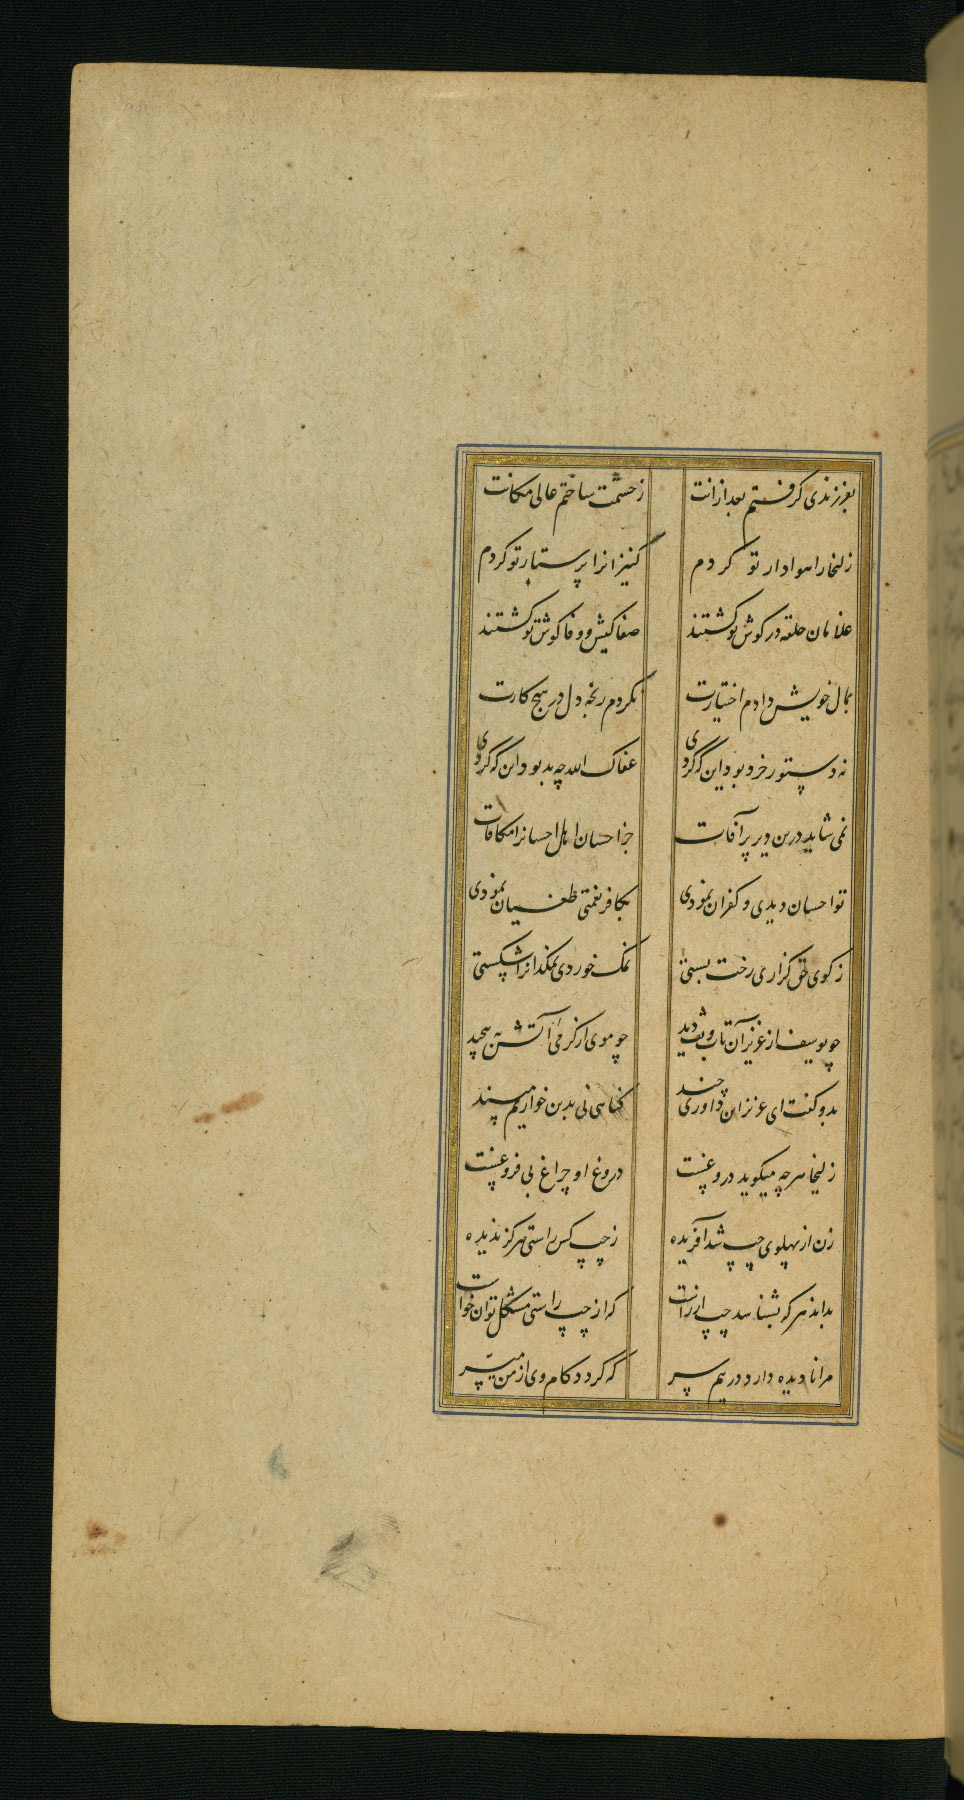 بفرزندی گرفتم بعد ازانت زحشمت ساختم عالی مکانت
زلیخارا هوادار تو کردم کنیزانرا پرستار تو کردم
غلامان حلقه در گوش تو گشتند صفا کیش و وفا کوش تو گشتند
بمال خویش دادم اختیارت نکردم رنجه دل در هیچ کارت
نه دستور خرد بود این که کردی عفاک الله چه بد بود این که کردی
نمی شاید درین دیر پر آفات جز احسان اهل احسانرا مکافات
تو احسان دیدی و کفران نمودی بکافر نعمتی طغیان نمودی
ز کوی حق گزاری رخت بستی نمک خوردی نمکدانرا شکستی
چو یوسف از عزیز آن تاب و تف دید چو موی از گرمی آتش به پیچید
بدو گفت ای عزیز این داوری چند گناهی نی بدین خواریم مپسند
زلیخا هرچه میگوید دروغیست دروغ او چراغ بی فروغیست
زن از پهلوی چپ شد آفریده ز چپ کس راستی هرگز ندیده
بداند هر که بشناسد چپ از راست که از چپ راستی مشکل توان خواست
مرا تا دیده دارد در پیم سر که گردد کام وی از من میسر